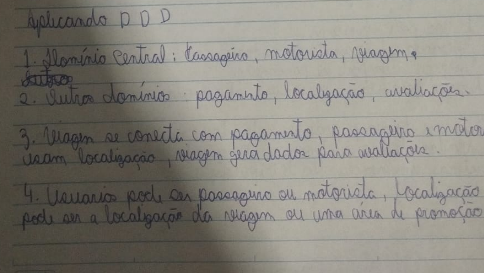 Aplicando DDD
1. Domínio central: Passageiro, motorista, viagem.
2. Outros domínios: pagamento, localização, avaliações.
3. Viagem se conecta com pagamento, passageiro e motor
usam localização, viagem gera dados para avaliações.
4. Usuario pode ser passageiro ou motorista, Localização
pode ser a localização da viagem ou uma área de promoção